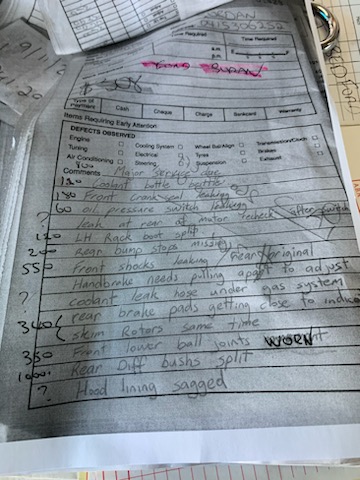 DAN
Time Required
a.m.
p.m.
FORD SUDAN
$ 308
Type of Payment Cash Cheque Charge Bankcard Warranty
Items Requiring Early Attention
DEFECTS OBSERVED
Engine Cooling System Wheel Bal/Align Transmission/Clutch
Tuning Electrical Tyres Brakes
Air Conditioning Steering Suspension Exhaust
Comments Major service due
Coolant bottle
180 Front Crank seal leaking
60 oil pressure switch leaking
? leak at rear of motor recheck after switch
120 LH Rack boot split
200 Rear bump stops missing
550 Front shocks leaking / Rear original
Handbrake needs pulling apart to adjust
? coolant leak hose under gas system
340 { rear brake pads getting close to
skim Rotors same time
350 Front lower ball joints WORN
Rear Diff bushs split
? Hood lining sagged